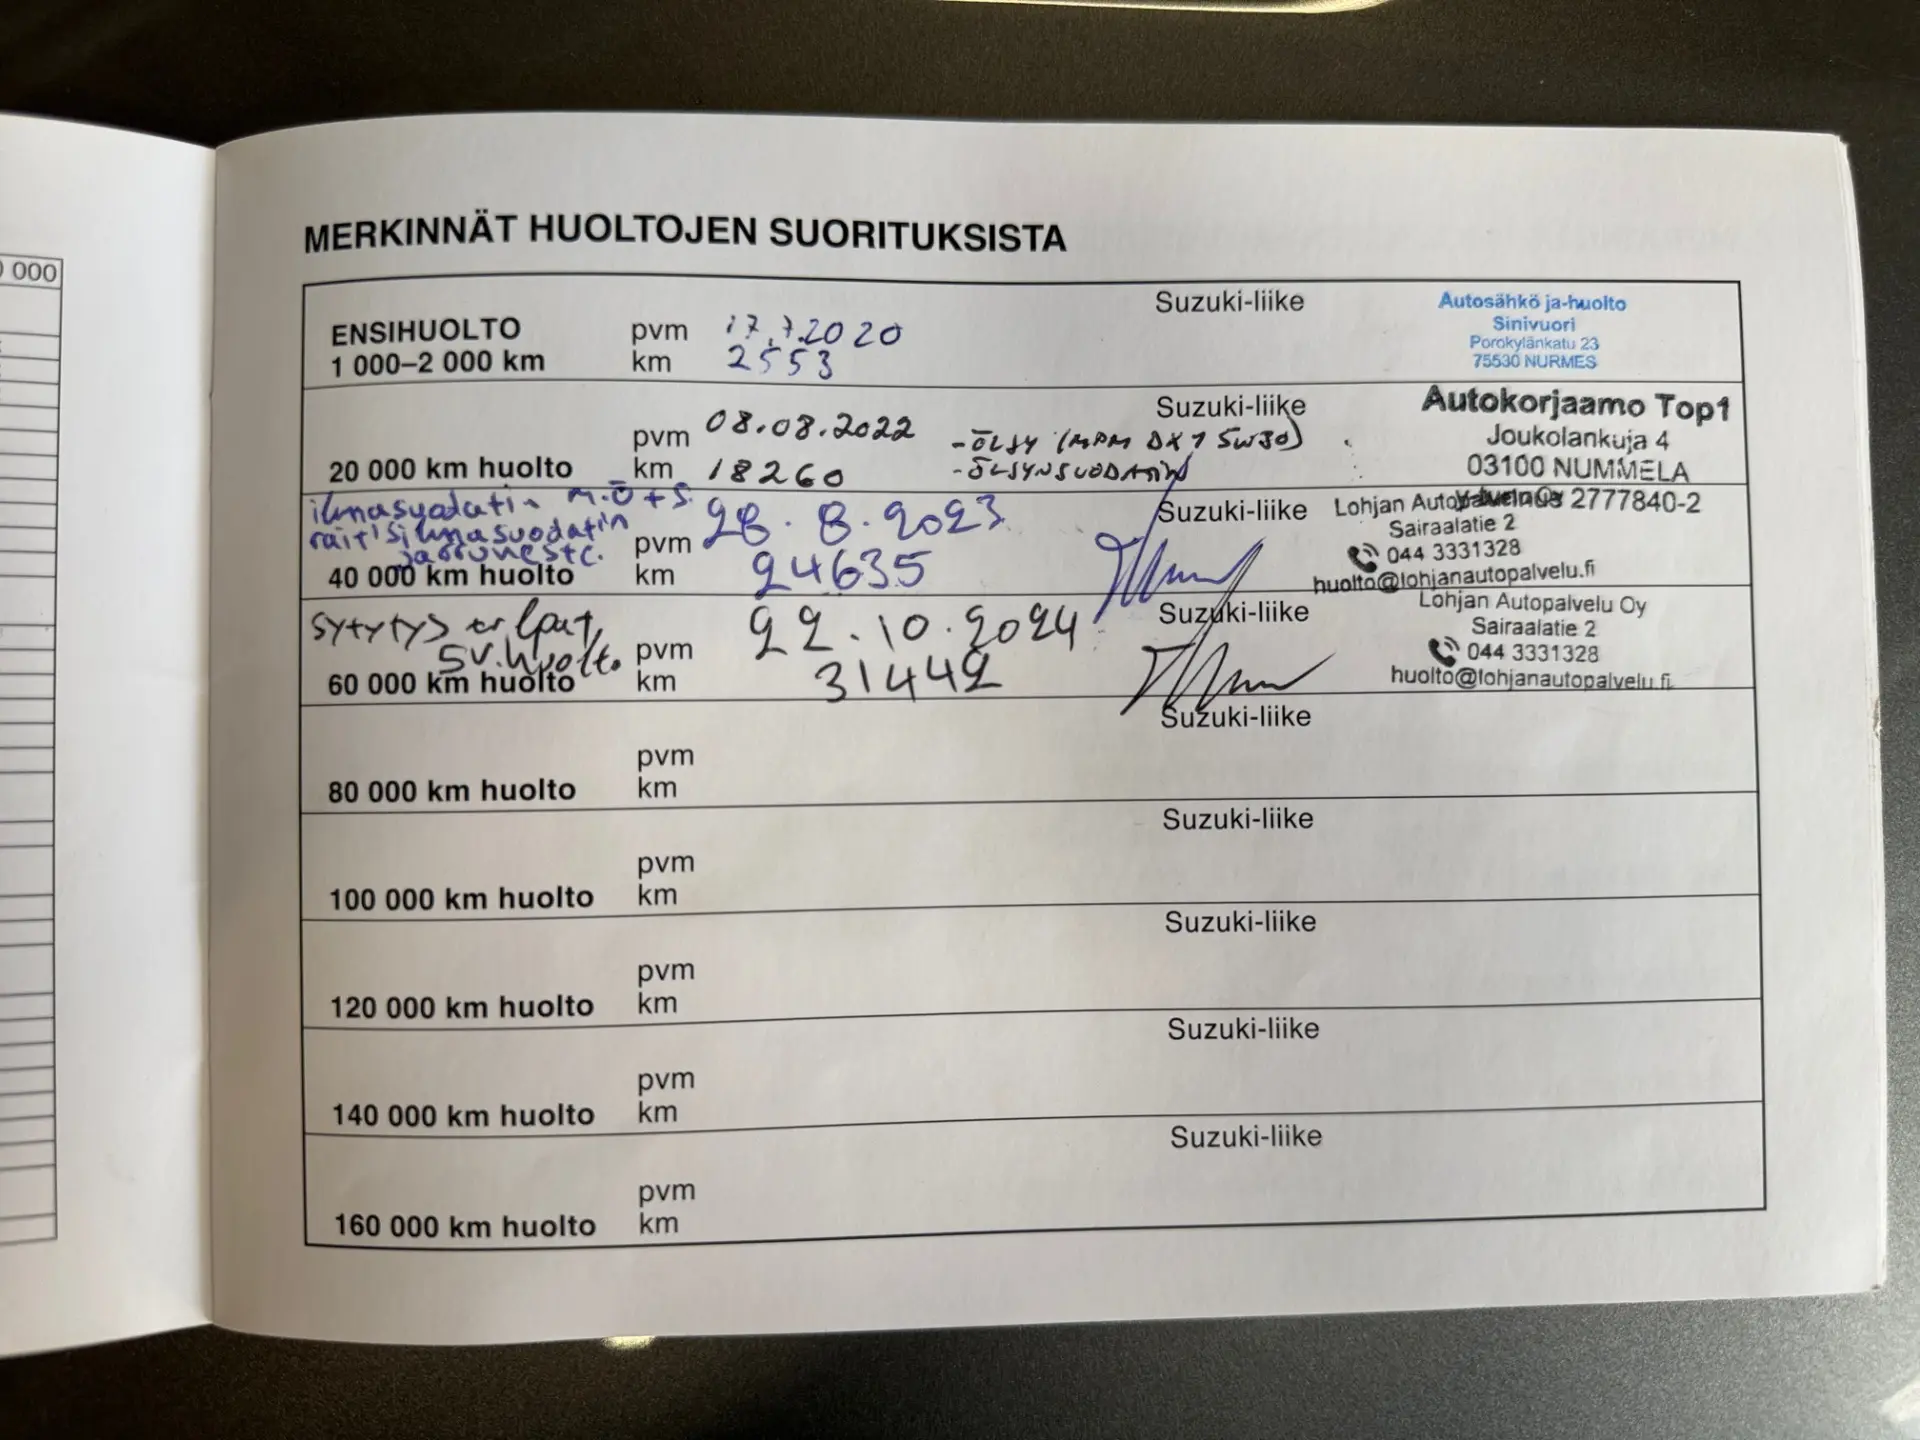 0 000
MERKINNÄT HUOLTOJEN SUORITUKSISTA
ENSIHUOLTO
1 000–2 000 km
pvm 17.7.2020
km 2553
Suzuki-liike
Autosähkö ja-huolto
Sinivuori
Porokylänkatu 23
75530 NURMES
20 000 km huolto
pvm 08.08.2022
km 18260
-ÖLJY (MPM DX1 5W30)
-ÖLJYNSUODATIN
Suzuki-liike
Autokorjaamo Top1
Joukolankuja 4
03100 NUMMELA
2777840-2
ilmasuodatin M.Ö+S.
raitisilmasuodatin
jarruneste.
40 000 km huolto
pvm 28.8.2023
km 24635
Suzuki-liike
Lohjan Autopalvelu Oy
Sairaalatie 2
044 3331328
huolto@lohjanautopalvelu.fi
sytytystulpat,
5V.huolto.
60 000 km huolto
pvm 22.10.2024
km 31442
Suzuki-liike
Lohjan Autopalvelu Oy
Sairaalatie 2
044 3331328
huolto@lohjanautopalvelu.fi
80 000 km huolto
pvm
km
Suzuki-liike
100 000 km huolto
pvm
km
Suzuki-liike
120 000 km huolto
pvm
km
Suzuki-liike
140 000 km huolto
pvm
km
Suzuki-liike
160 000 km huolto
pvm
km
Suzuki-liike